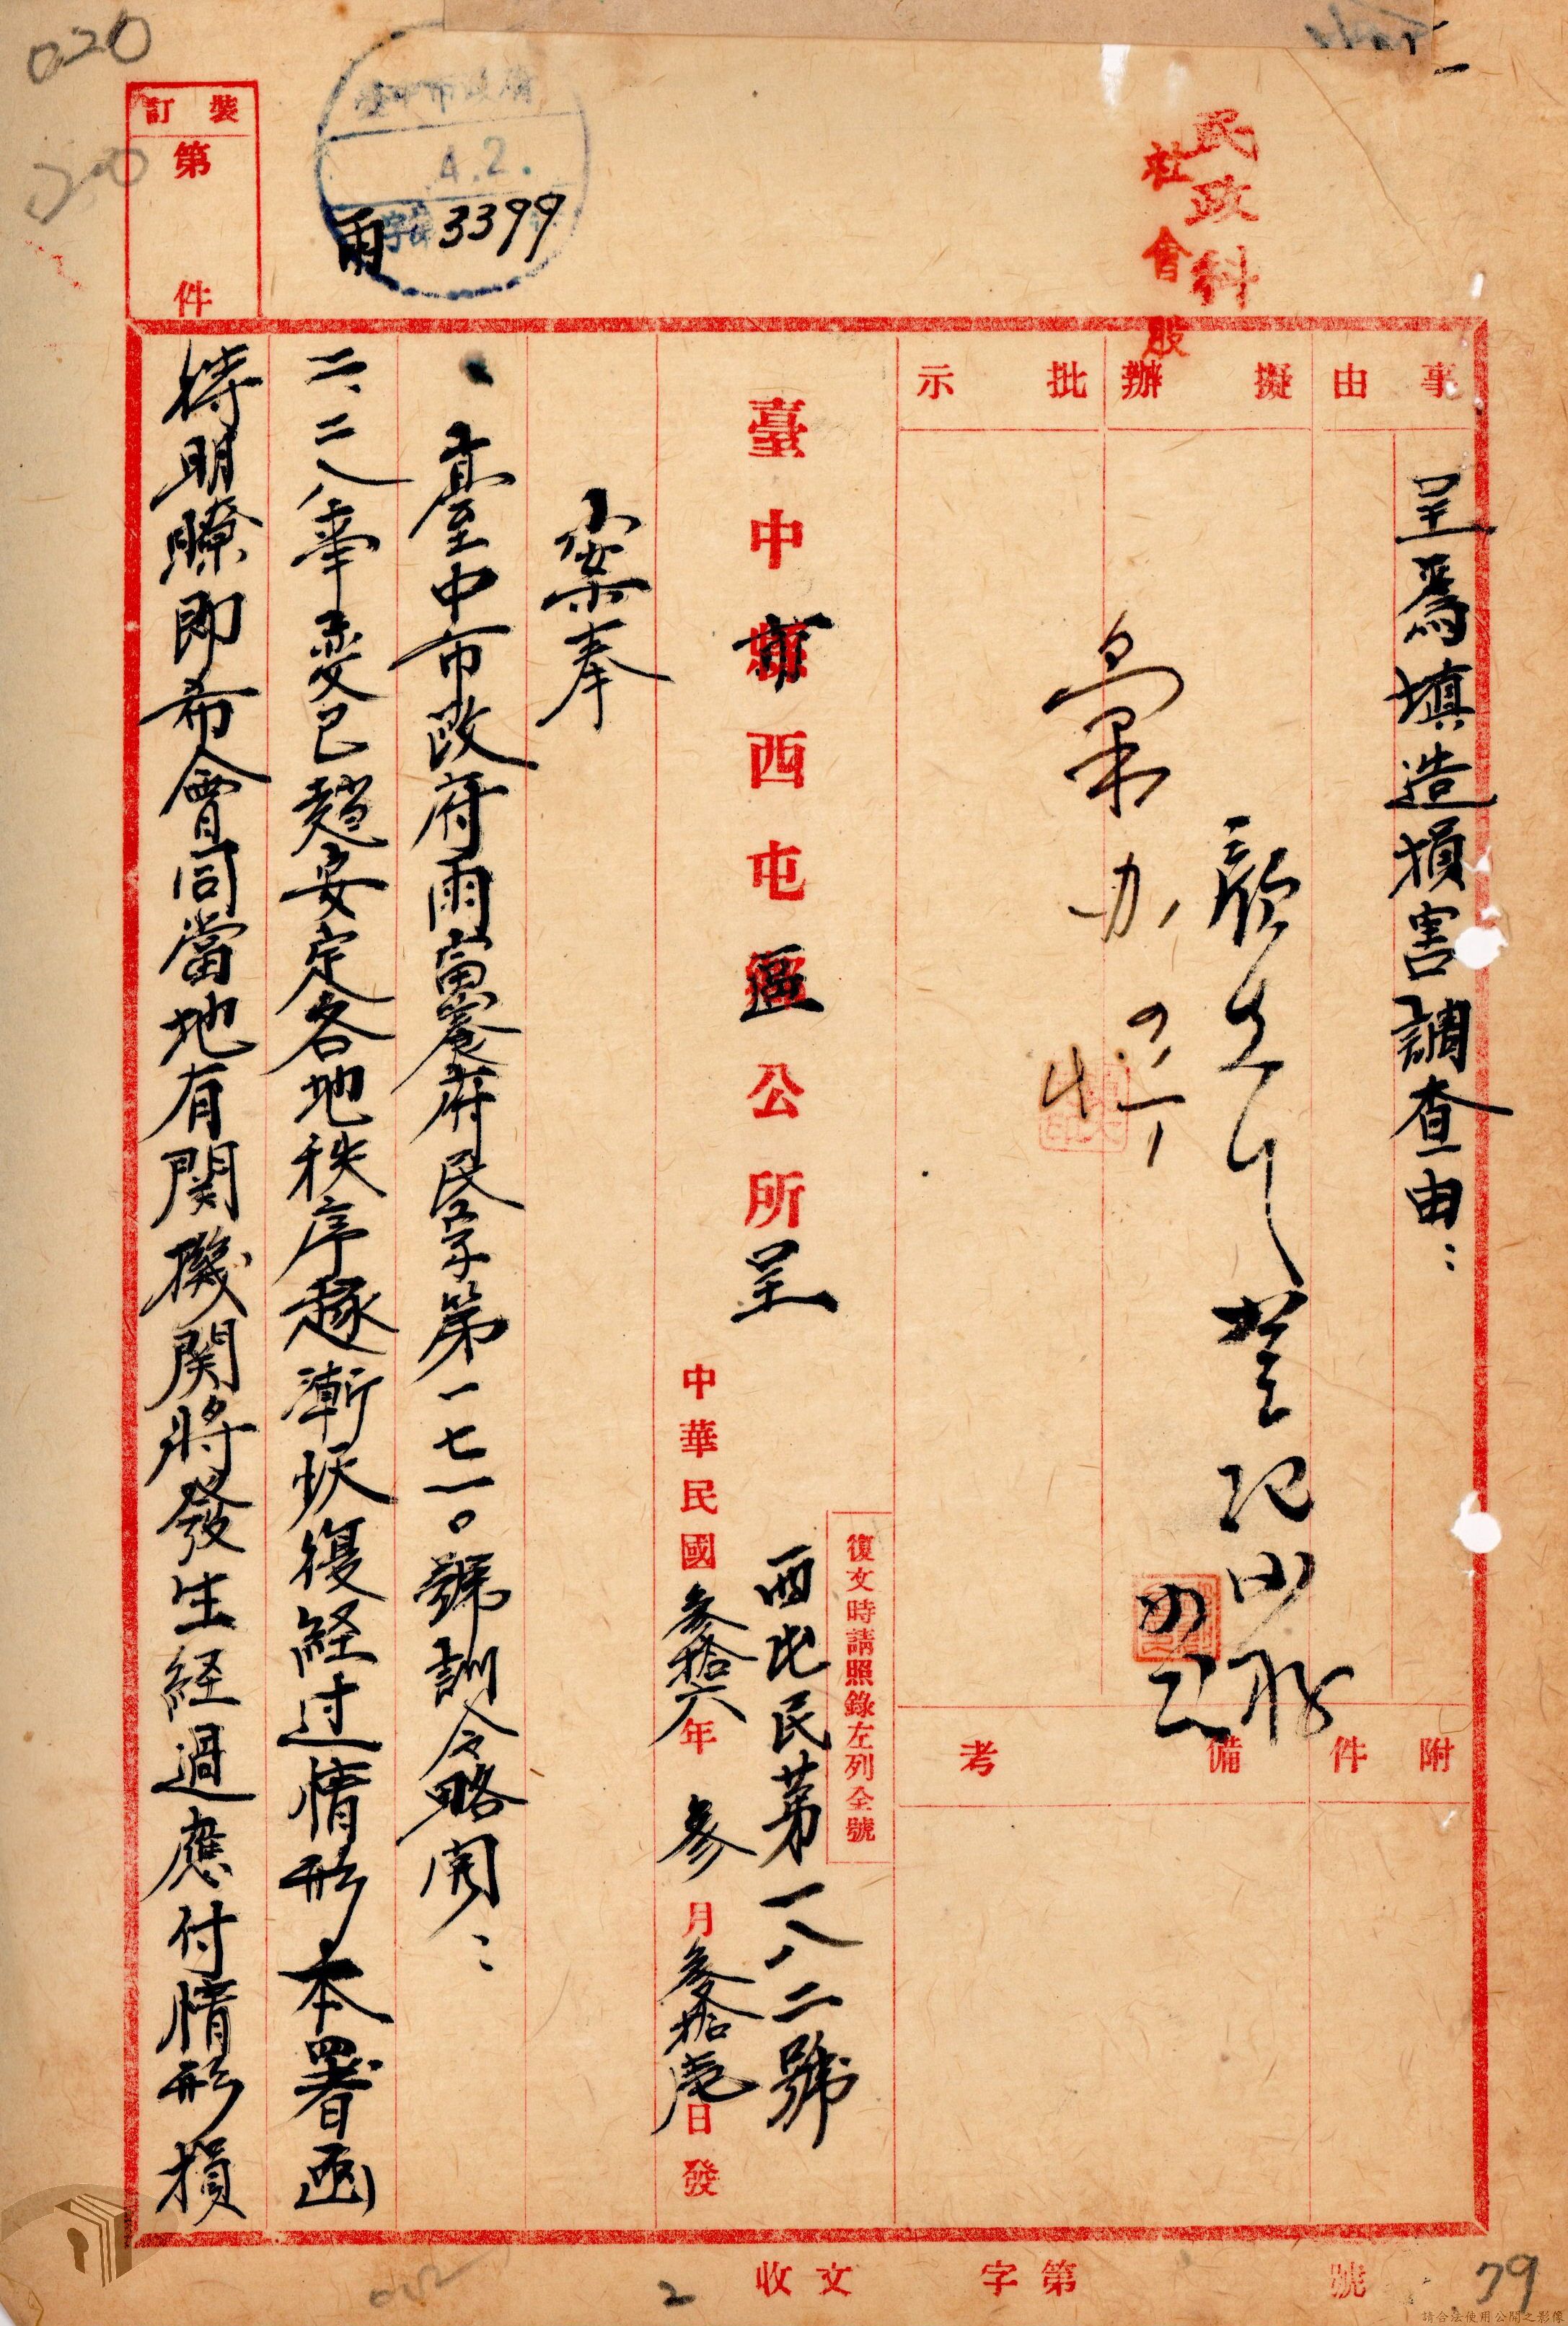 020
裝訂
第 件
臺中市政府
4.2.
雨 字第 3399
民政科
社會股
事由
擬辦
批示
呈為填造損害調查由：
彙办
登記
附件
備考
臺中市西屯區公所呈
復文時請照錄左列全號
西屯民第一八二號
中華民國參拾六年參月參拾壹日發
案奉
臺中市政府雨寅震府民字第一七一〇號訓令略開：
二、二八事變已趨安定各地秩序趨漸恢復経过情形本署亟
待明瞭即希會同當地有関機関將發生経過應付情形損
收文 字第 號
2
79
請合法使用公開之影像